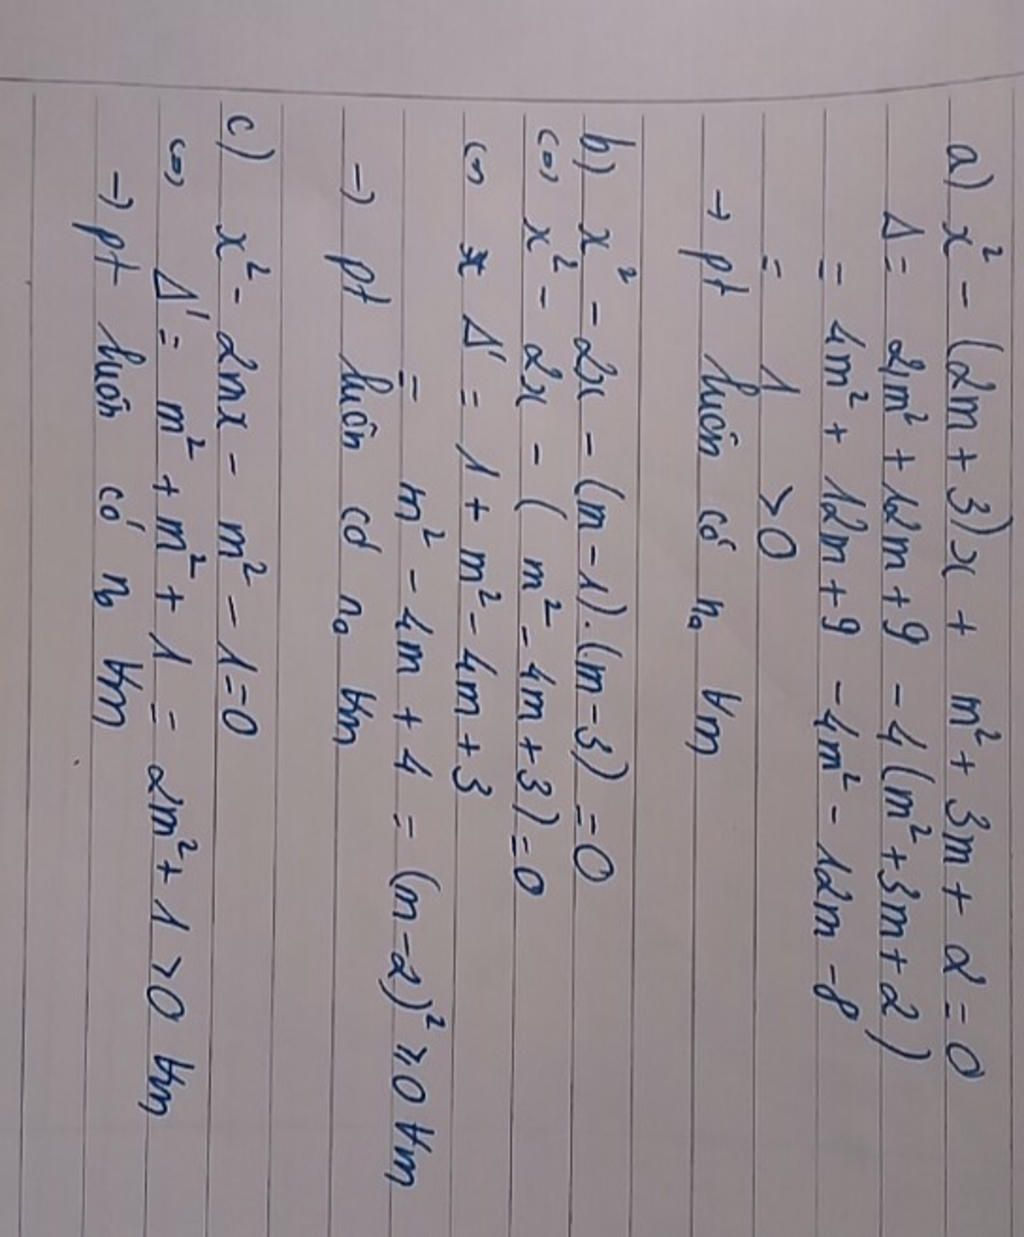 a) x² - (2m + 3)x + m² + 3m + 2 = 0
Δ = 4m² + 12m + 9 - 4(m² + 3m + 2)
= 4m² + 12m + 9 - 4m² - 12m - 8
= 1 > 0
→ pt luôn có n₀ ∀m
b) x² - 2x - (m - 1).(m - 3) = 0
⇔ x² - 2x - (m² - 4m + 3) = 0
⇔ Δ' = 1 + m² - 4m + 3
= m² - 4m + 4 = (m - 2)² ≥ 0 ∀m
→ pt luôn có n₀ ∀m
c) x² - 2mx - m² - 1 = 0
⇔ Δ' = m² + m² + 1 = 2m² + 1 > 0 ∀m
→ pt luôn có n₀ ∀m